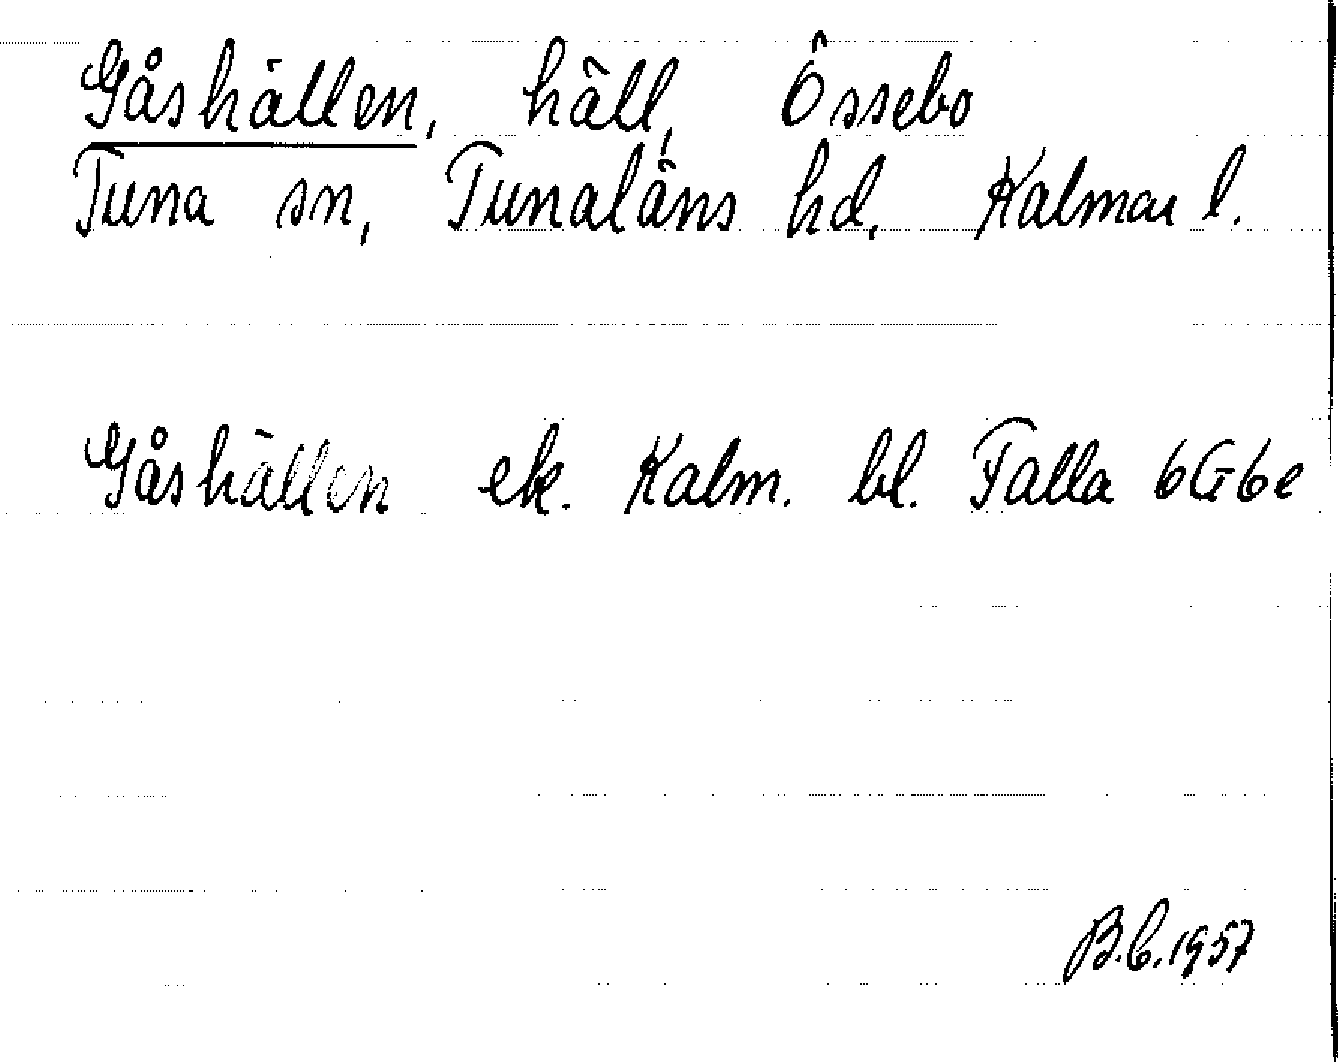 Gåshällen, häll, Össebo
Tuna sn, Tunaläns hd. Kalmar l.
Gåshällen ek. Kalm. bl. Falla 6G6e
B.C.1957